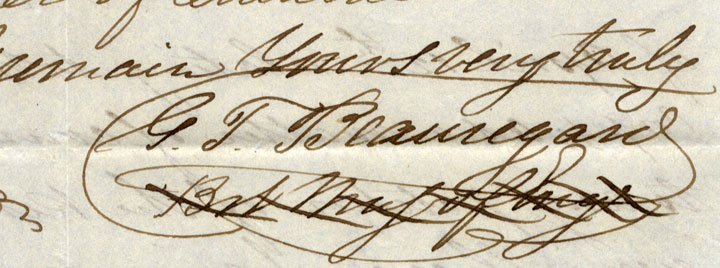 of
remain Yours very truly
G. T. Beauregard
Bvt Maj of Engrs